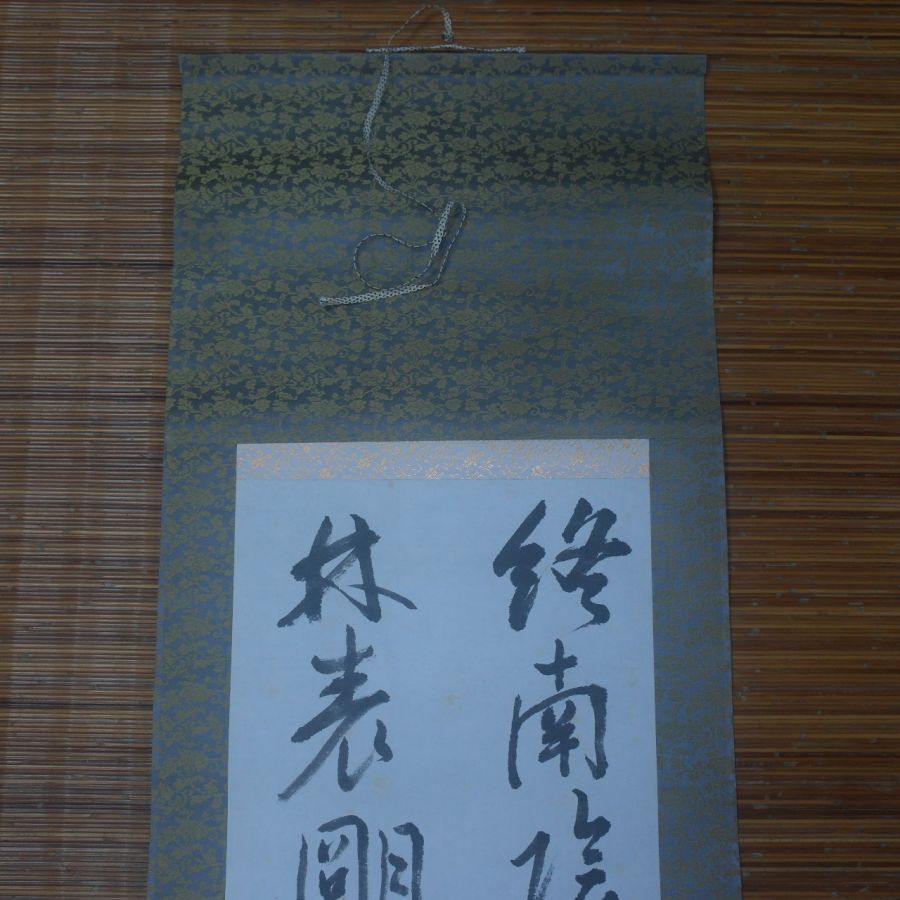 終南陰
林表明